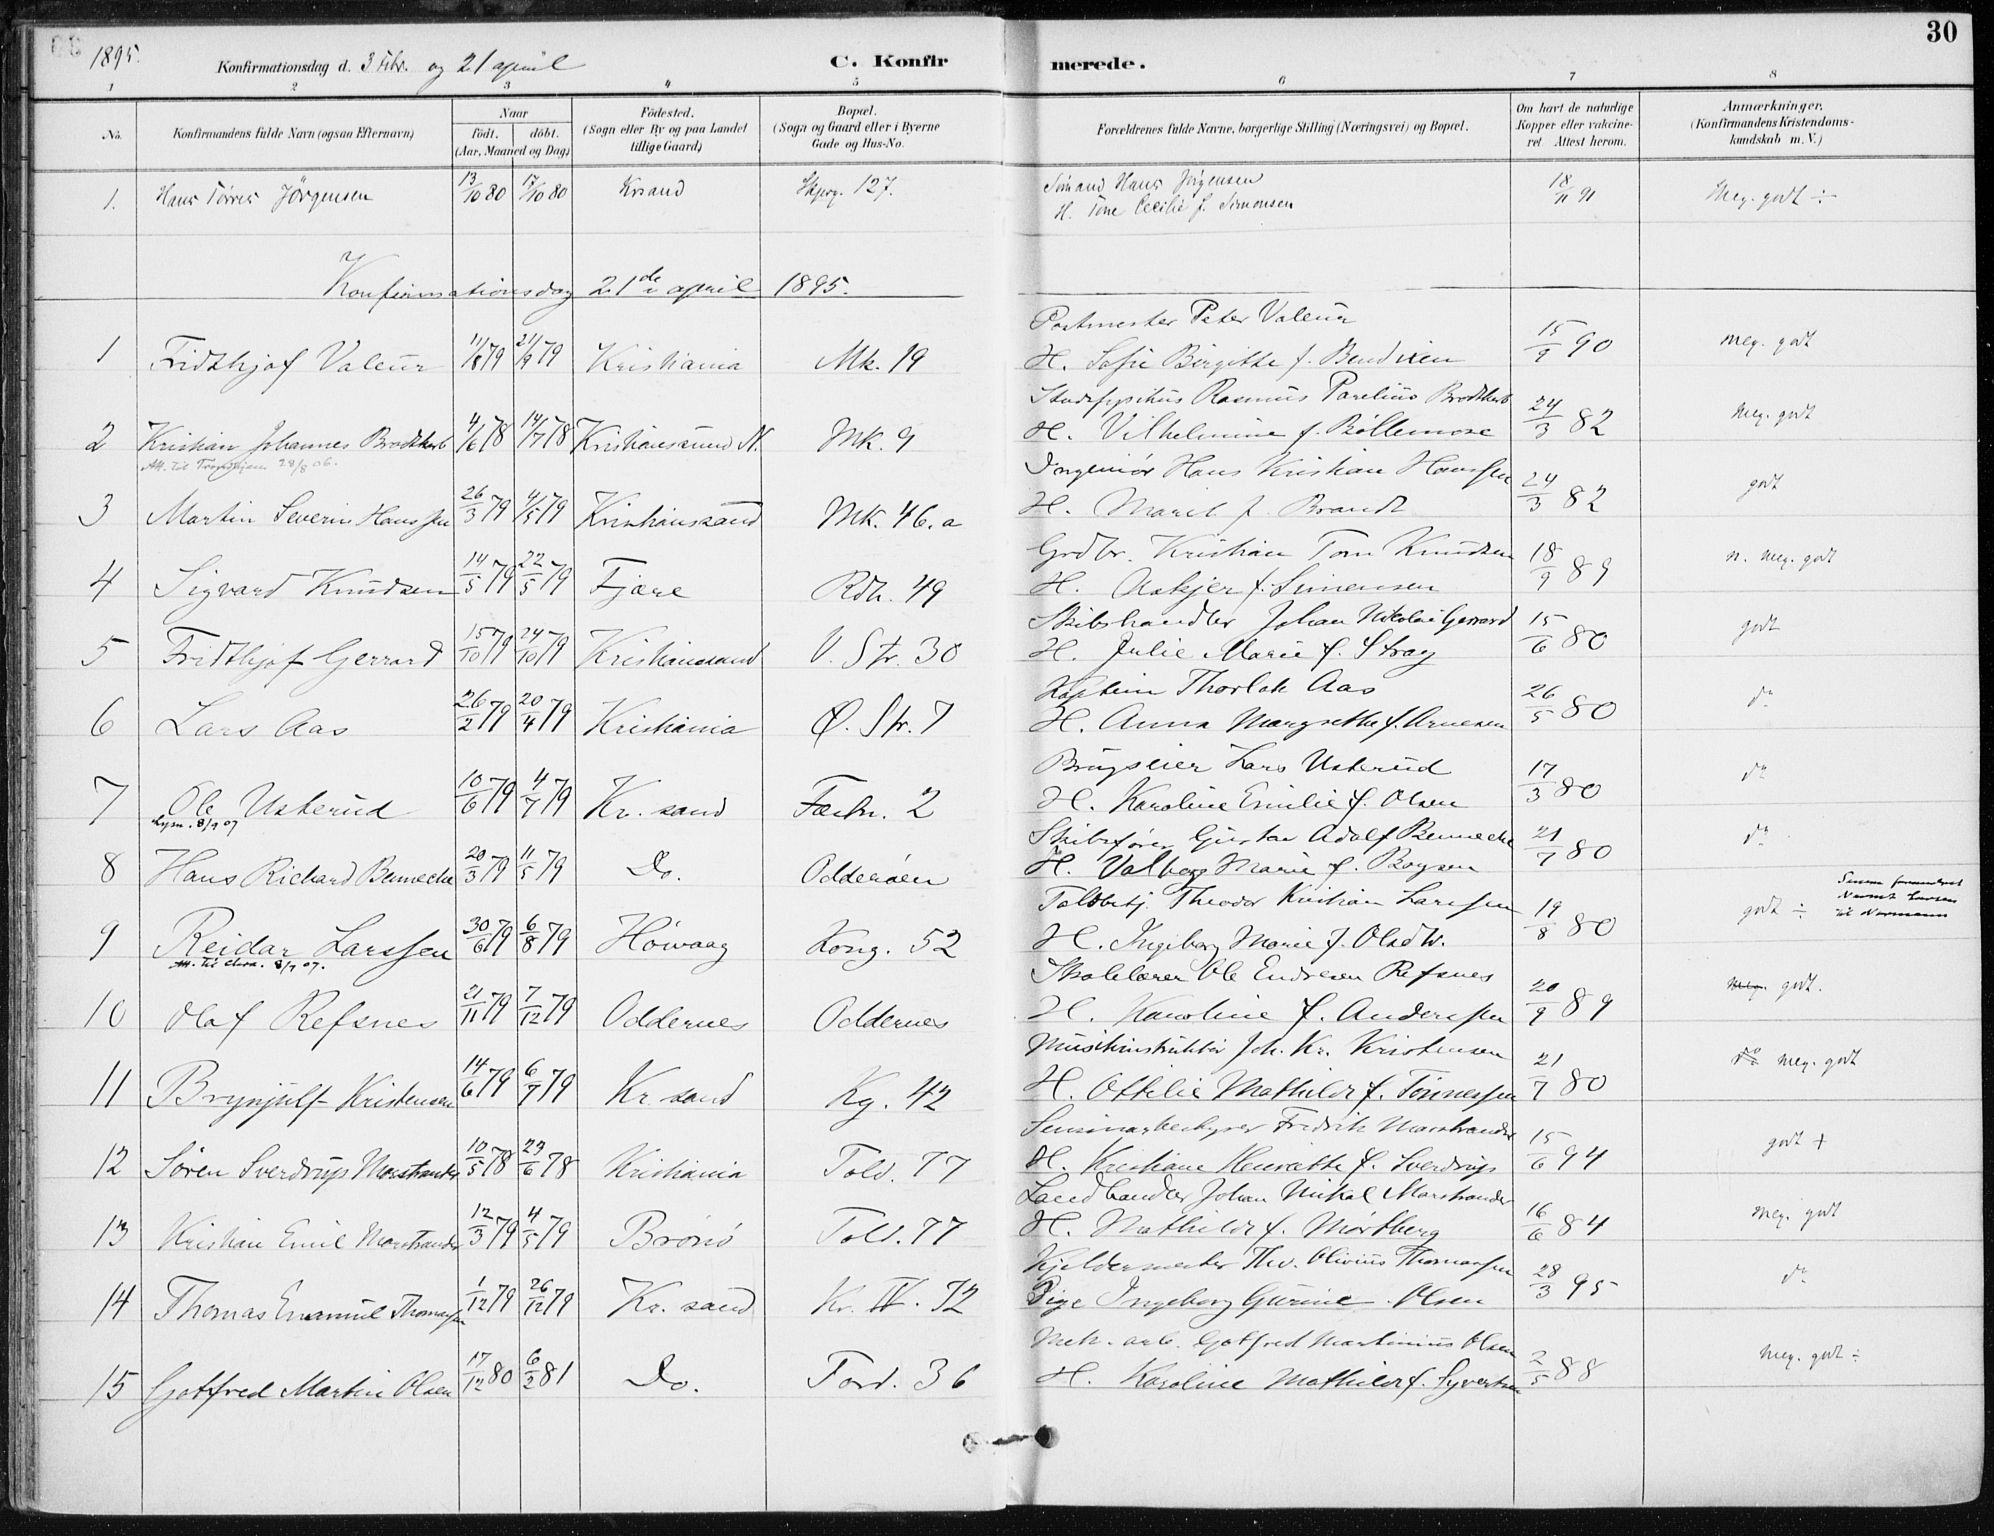 30
1895. Konfirmationsdag d. 3 Febr. og 21 april C. Konfirmerede.
1 2 3 4 5 6 7 8
No. Konfirmandens fulde Navn (ogsaa Efternavn) Naar födt. döbt. (Aar, Maaned og Dag) Födested. (Sogn eller By og paa Landet tillige Gaard) Bopæl. (Sogn og Gaard eller i Byerne Gade og Hus-No. Forældrenes fulde Navne, borgerlige Stilling (Næringsvei) og Bopæl. Om havt de naturlige Kopper eller vakcineret Attest herom. Anmærkninger. (Konfirmandens Kristendomskundskab m. V.)
1. Hans Tørres Jörgensen 13/10 80 17/10 80 Krsand 127. Hans Jörgensen 18/11 91 Meg. godt ÷
H. Tone Cecilie f. Simonsen
Konfirmationsdag 21de april 1895.
Postmester Peter Valeur
1 Fridthjof Valeur 11/8 79 21/9 79 Kristiania Mk. 19 H. Sofie Birgitte f. Bendixen 15/9 90 meg. godt
Stadsfysikus Rasmus Parelius Brodtkorb
2 Kristian Johannes Brodtkorb 4/6 78 14/7 78 Kristianssund N. Mk. 9 H. Vilhelmine f. Bøllemose 24/3 82 Meg. godt
Att. til Trondhjem 28/8 06.
Ingeniør Hans Kristian Hanssen
3 Martin Severin Hanssen 26/3 79 4/5 79 Kristianssand Mk. 46.a H. Marit f. Brandt 24/3 82 godt
Grdbr. Kristian Tom Knudsen
4 Sigvard Knudsen 14/5 79 22/5 79 Fjære Rdh. 49 H. Askjer f. Simensen 18/9 89 n. meg. godt
Skibshandler Johan Nikolai Gerrard
5 Fridthjof Gerrard 15/10 79 24/10 79 Kristianssand V. Str. 30 H. Julie Marie f. Stray 15/6 80 godt
Kaptein Thorlak Aas
6 Lars Aas 26/2 79 20/4 79 Kristiania Ø. Str. 7 H. Anna Margrethe f. Arnesen 26/5 80 do
Brugseier Lars Usterud
7 Ole Usterud 10/6 79 4/7 79 Kr. sand Fæstn. 2 H. Karoline Emilie f. Olsen 17/3 80 do
8/7 07
Skibsfører Gustav Adolf Bennecke
8 Hans Richard Bennecke 20/3 79 11/5 79 Do. Odderøen H. Valborg Marie f. Boysen 21/7 80 do
Toldbetj. Theodor Kristian Larssen
9 Reidar Larssen 30/6 79 6/8 79 Høivaag Kong. 52 H. Ingeborg Marie f. Olsdtr. 19/8 80 godt ÷ Senere forandret Navnet Larssen til Normann
Att. til 8/7 07.
Skolelærer Ole Endresen Refsnes
10 Olaf Refsnes 21/11 79 7/12 79 Oddernes Oddernes H. Karoline f. Anderssen 20/9 89 Meg. godt.
Musikinstruktør Joh. Kr. Kristensen
11 Brynjulf Kristensen 14/6 79 6/7 79 Kr. sand Kg. 42 H. Ottilie Mathilde f. Tønnessen 21/7 80 do meg. godt
Seminarbestyrer Fredrik Marstrander
12 Søren Sverdrup Marstrander 10/5 78 23/6 78 Kristiania Told. 77 H. Kristiane Henriette f. Sverdrup 15/6 94 godt +
Landhandler Johan Mikal Marstrander
13 Kristian Emil Marstrander 12/3 79 4/5 79 Brønø Told. 77 H. Mathilde f. Mørtberg 16/6 84 Meg. godt
Kjeldermester Thv. Olivius Thomassen
14 Thomas Emanuel Thomassen 1/12 79 26/12 79 Kr. sand Kr. IV. 72 Pige Ingeborg Gurine Olsen 28/3 95 do
Mek. arb. Gotfred Martinius Olsen
15 Gotfred Martin Olsen 17/12 80 6/2 81 Do. Tord. 36 H. Karoline Mathilde f. Syvertsen 2/5 88 Meg. godt ÷